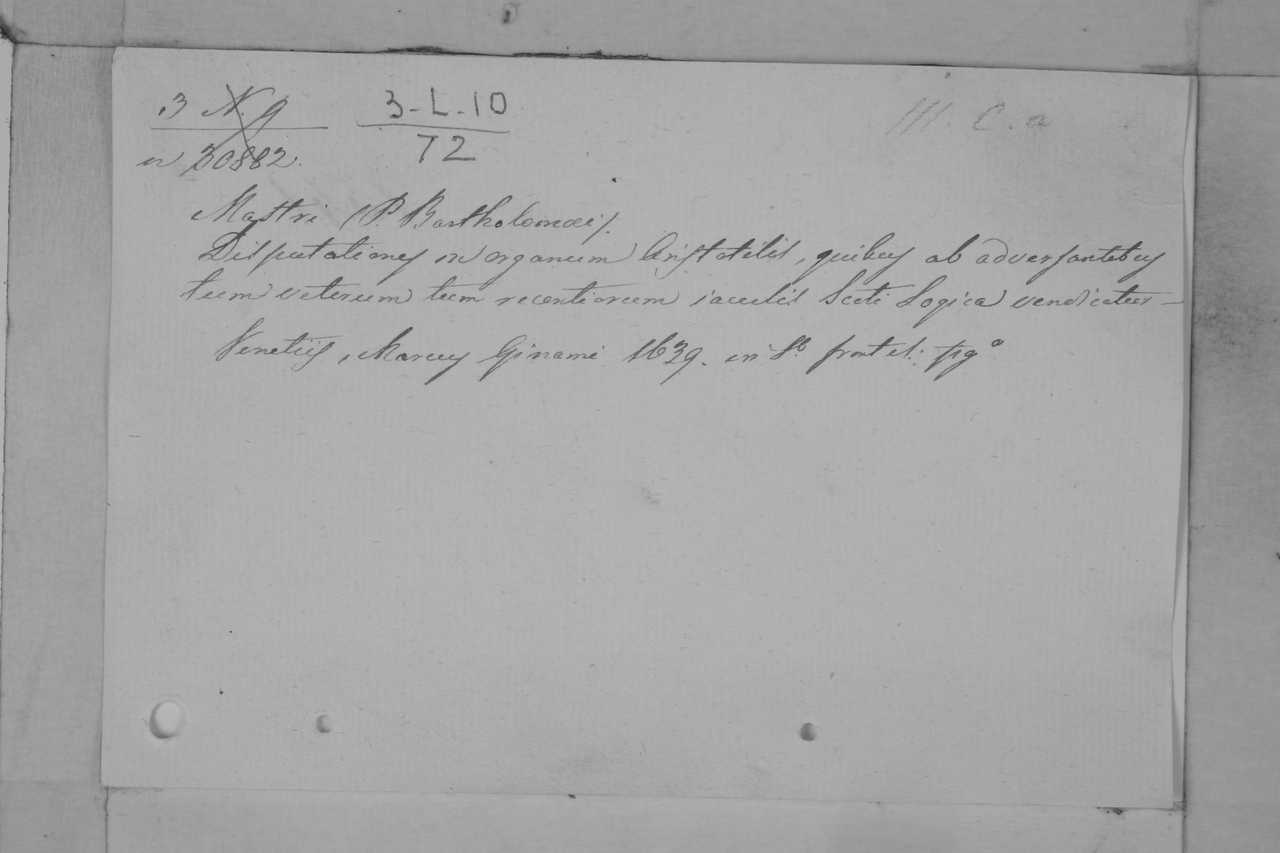 3 N. 9 3-L-10 III. C. a
n 30882. 72
Mastri (P. Bartholomæi).
Disputationes in organum Aristotilis, quibus ab adversantibus
tum veterum tum recentiorum iaculis Scoti Logica vendicatur –
Venetiis, Marcus Ginami 1639. in 8º frontesp: figª